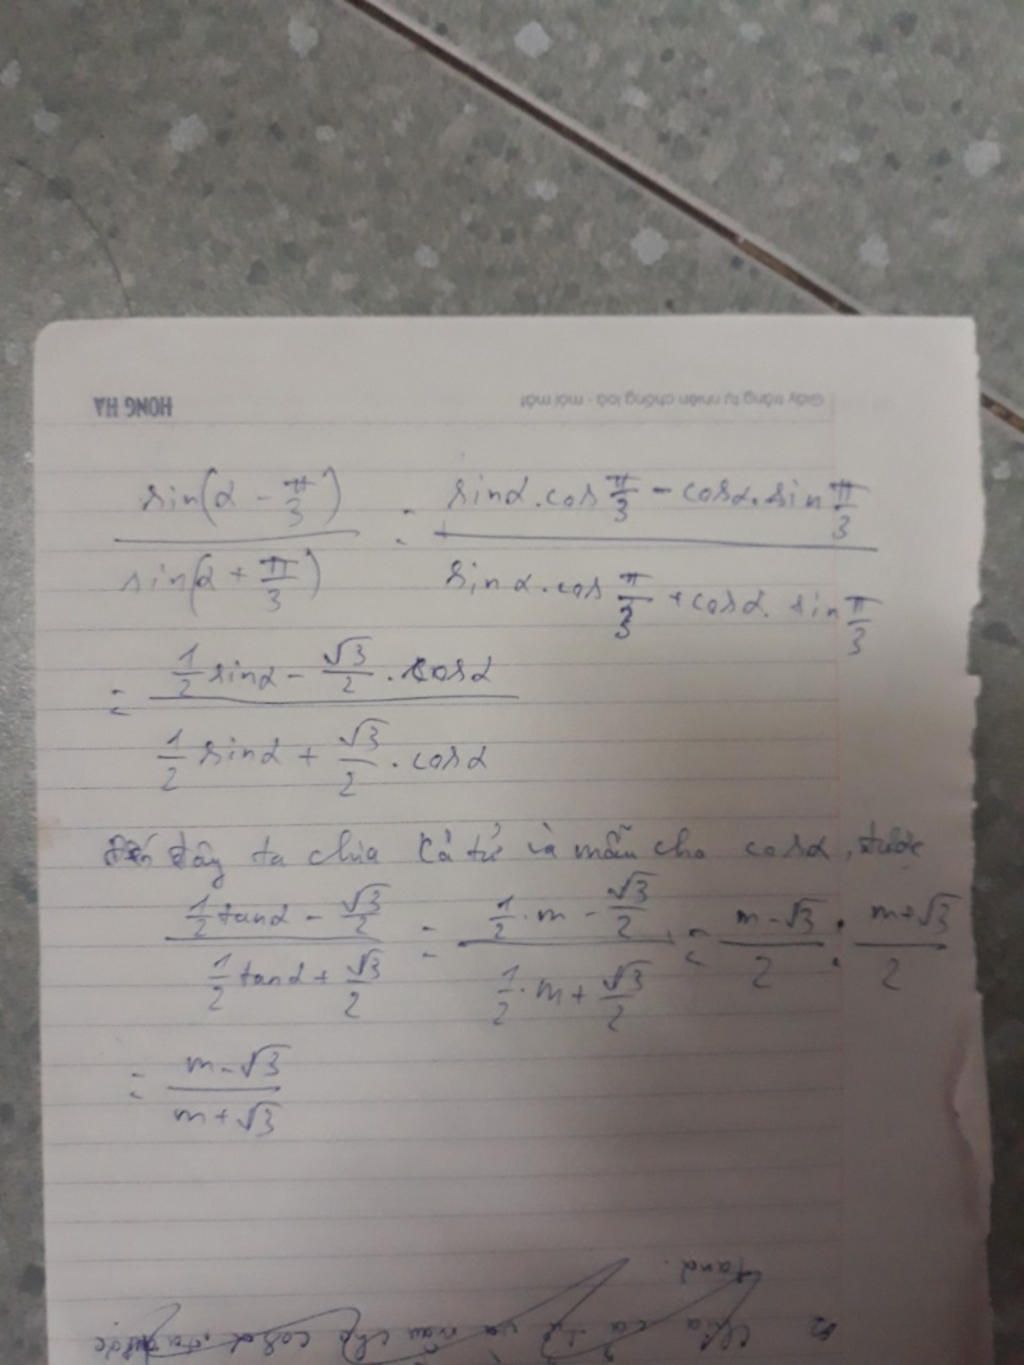 HONG HA
Giấy trắng tự nhiên chống loá - mỏi mắt
sin(α - π/3) / sin(α + π/3) = (sinα.cos π/3 - cosα.sin π/3) / (sinα.cos π/3 + cosα. sin π/3)
= (1/2 sinα - √3/2 . cosα) / (1/2 sinα + √3/2 . cosα)
đến đây ta chia cả tử và mẫu cho cosα, được
(1/2 tanα - √3/2) / (1/2 tanα + √3/2) = (1/2 . m - √3/2) / (1/2 . m + √3/2) = (m-√3)/2 : (m+√3)/2
= (m-√3) / (m+√3)
tanα.
chia cả tử và mẫu cho cosα, ta được